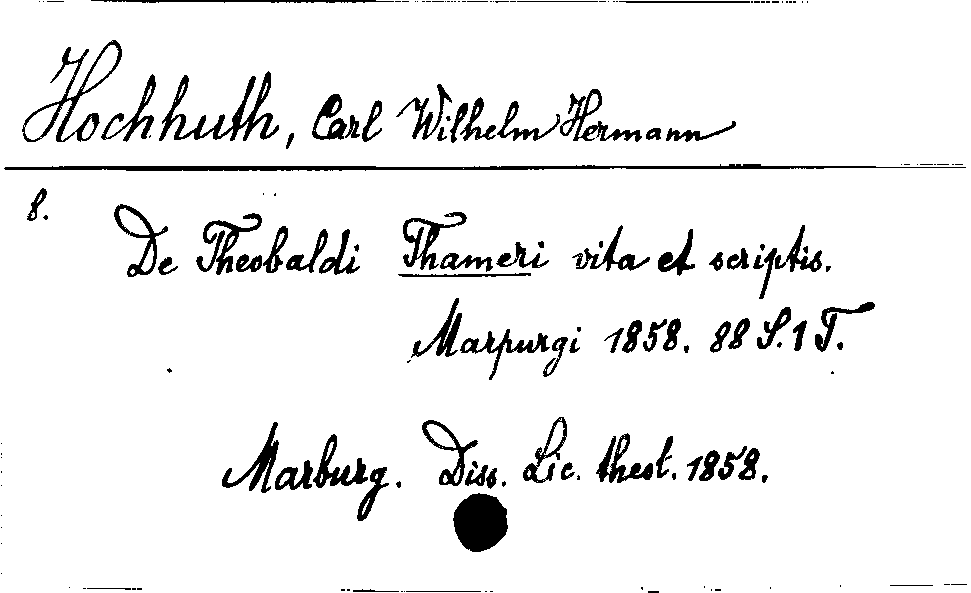 Hochhuth, Carl Wilhelm Hermann
8.
De Theobaldi Thameri vita et scriptis.
Marpurgi 1858. 88 S. 1 T.
Marburg. Diss. Lic. theol. 1858.